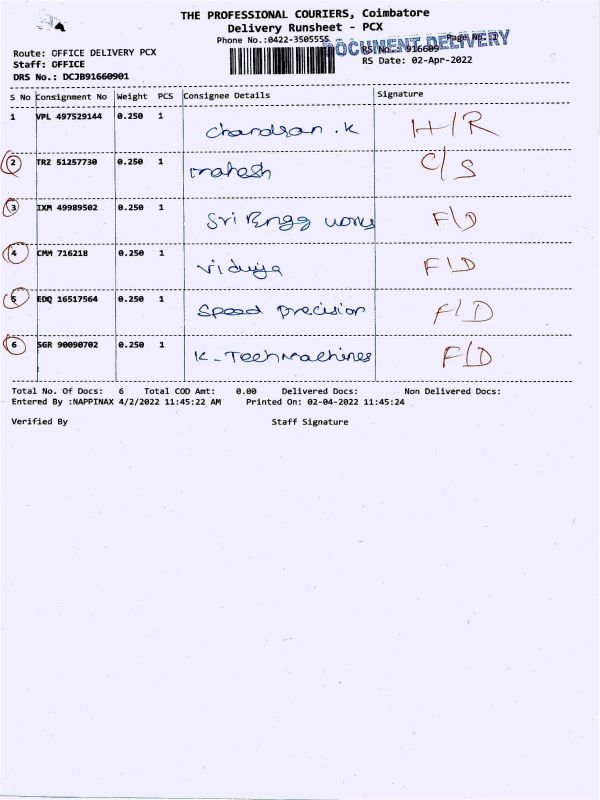 THE PROFESSIONAL COURIERS, Coimbatore
Delivery Runsheet - PCX
Phone No.:0422-3505555 Page No.:1
DOCUMENT DELIVERY
Route: OFFICE DELIVERY PCX RS No.: 916609
Staff: OFFICE RS Date: 02-Apr-2022
DRS No.: DCJB91660901
S No Consignment No Weight PCS Consignee Details Signature
1 VPL 497529144 0.250 1 Chandran .K H/R
2 TRZ 51257730 0.250 1 mahesh C/S
3 IXM 49989502 0.250 1 Sri Engg works F\D
4 CMM 716218 0.250 1 F\D
5 EDQ 16517564 0.250 1 Speed precision F/D
6 SGR 90090702 0.250 1 K-Tech Machines F/D
Total No. Of Docs: 6 Total COD Amt: 0.00 Delivered Docs: Non Delivered Docs:
Entered By :NAPPINAX 4/2/2022 11:45:22 AM Printed On: 02-04-2022 11:45:24
Verified By Staff Signature